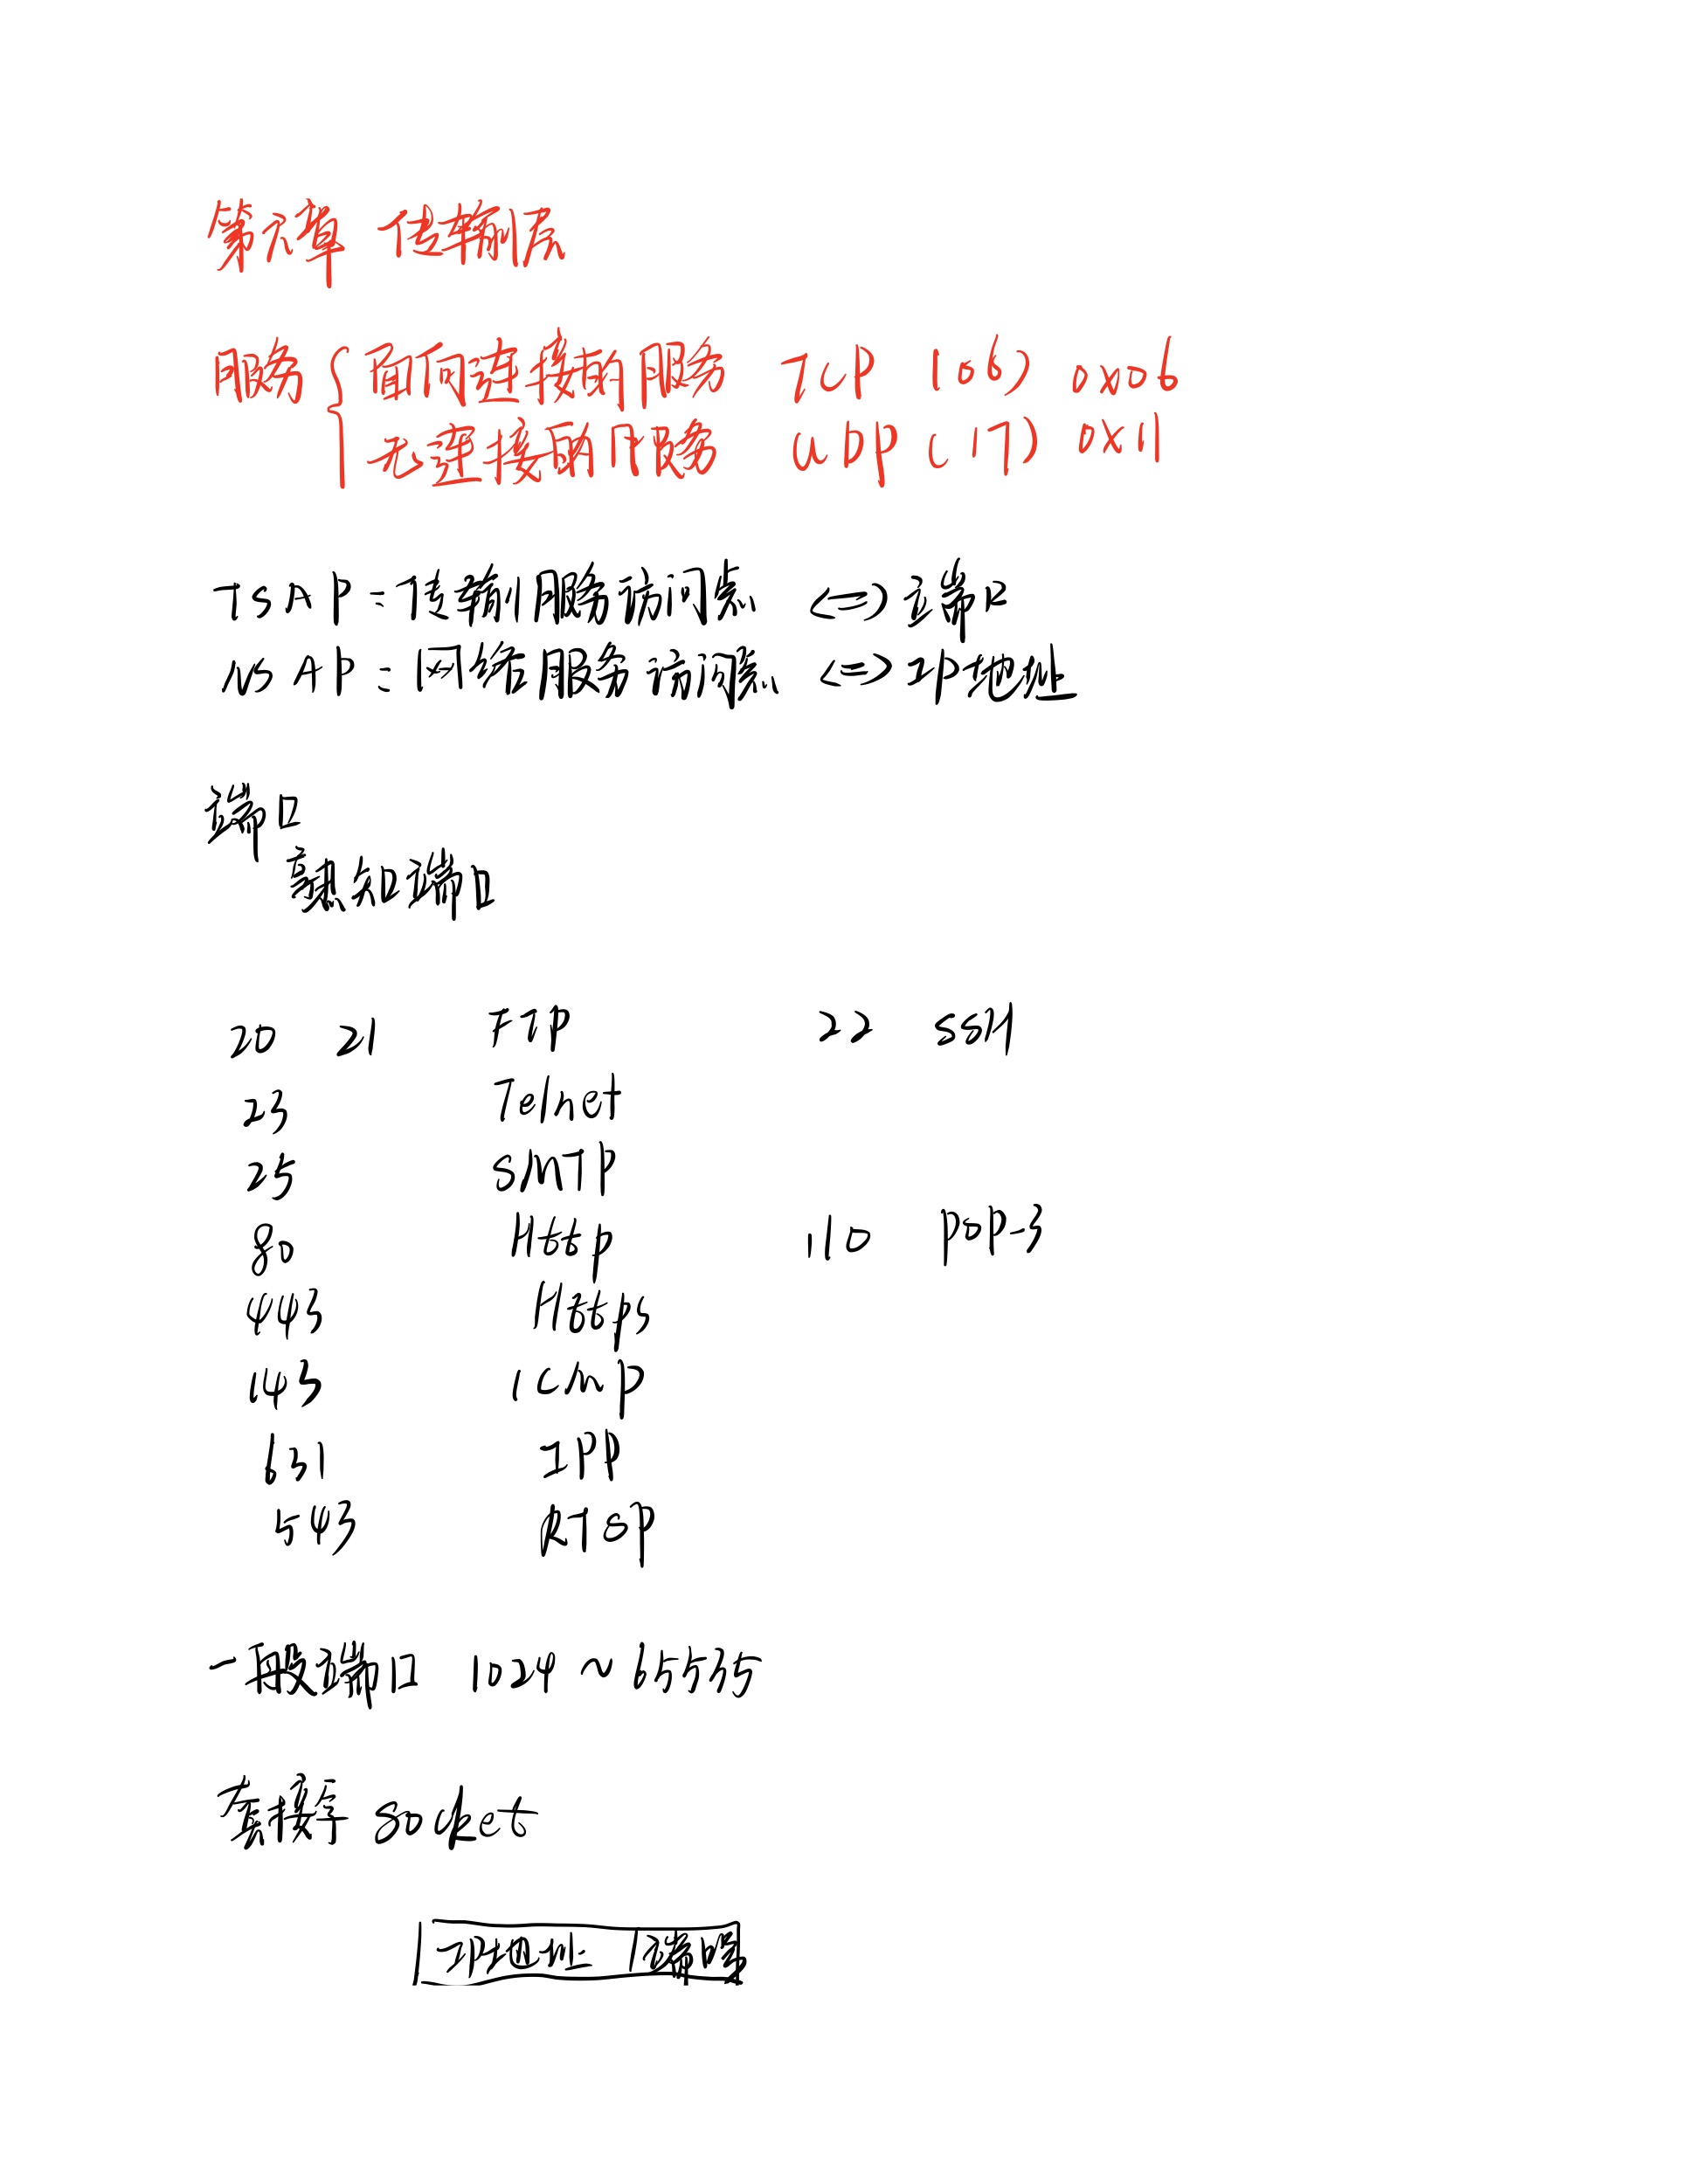 第六章 传输层
服务 { 面向连接的服务 TCP (06) 0x06
无连接的服务 UDP (17) 0x11
TSAP = 传输服务访问点 <=> 端口
NSAP = 网络服务访问点 <=> IP地址
端口
熟知端口
20 21 FTP 22 SSH
23 Telnet
25 SMTP
80 Http 110 POP-3
443 Https
143 ICMP
631 IPP
543 RTSP
一般端口 1024 ~ 65535
套接字 socket
IP地址 端口号